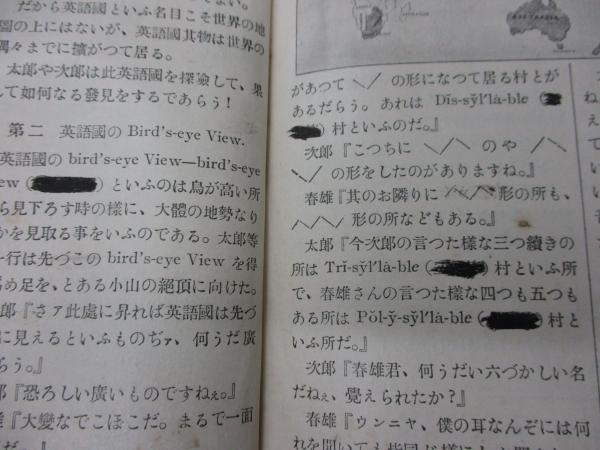 だから英語國といふ名目こそ世界の地
圖の上にはないが、英語國其物は世界の
隅々までに擴がつて居る。
太郎や次郎は此英語國を探險して、果
して如何なる發見をするであらう!
第二 英語國の Bird's-eye View.
英語國の bird's-eye View—bird's-eye
といふのは鳥が高い所
ら見下ろす時の樣に、大體の地勢なり
かを見取る事をいふのである。太郎等
一行は先づこの bird's-eye View を得
め足を、とある小山の絕頂に向けた。
郎『さァ此處に昇れば英語國は先づ
に見えるといふものぢァ、何うだ廣
らう。』
郎『恐ろしい廣いものですねぇ。』
『大變なでこぼこだ。まるで一面
AUSTRALIA
があつて ╲╱ の形になつて居る村とが
あるだらう。あれは Dĭs-sўl′là-ble (
村といふのだ。』
次郎『こつちに ╲╱╲ のや ╱╲╱
╲╱ の形をしたのがありますね。』
春雄『其のお隣りに 形の所も、
形の所などもある。』
太郎『今次郎の言つた樣な三つ續きの
所は Trĭ-sўl′là-ble ( ) 村といふ所
で、春雄さんの言つた樣な四つも五つも
ある所は Pŏl-ў-sўl′là-ble ( ) 村と
いふ所だ。』
次郎『春雄君、何うだい六づかしい名
だねぇ、覺えられたか?』
春雄『ウンニャ、僕の耳なんぞには何